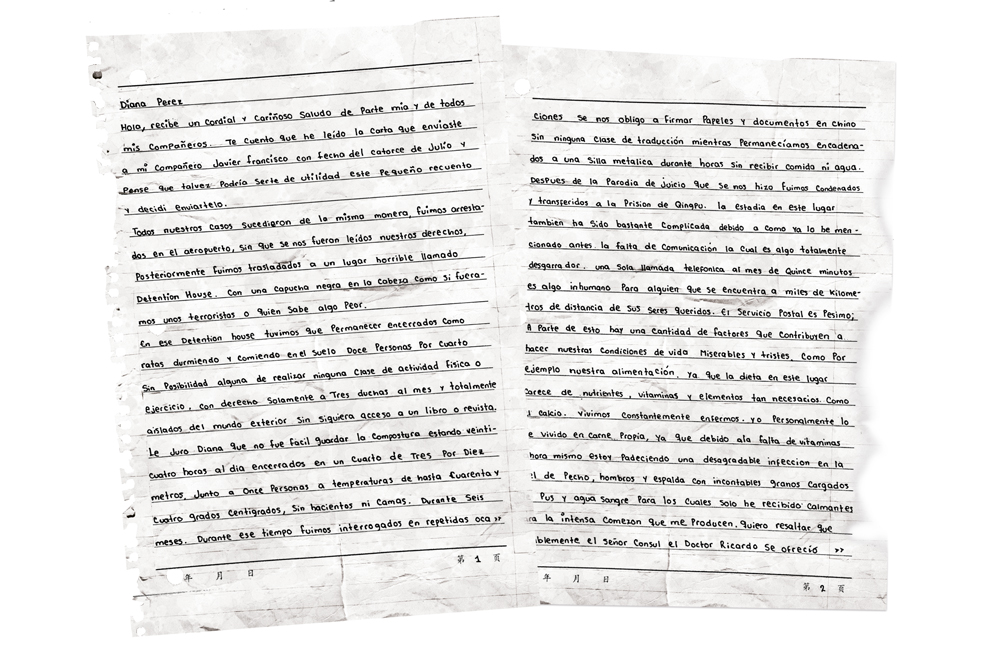 Diana Perez
Hola, recibe un Cordial y Cariñoso Saludo de Parte mia y de todos
mis Compañeros. Te Cuento que he leído la Carta que enviaste
a mi Compañero Javier francisco con fecha del catorce de Julio y
Pense que talvez Podría Serte de utilidad este Pequeño recuento
y decidi enviartelo.
Todos nuestros casos Sucedieron de la misma manera, fuimos arresta-
dos en el aeropuerto, Sin que se nos fueron leídos nuestros derechos,
Posteriormente fuimos trasladados a un lugar horrible llamado
Detention House. Con una Capucha negra en la Cabeza Como si fuera-
mos unos terroristas o quien Sabe algo Peor.
En ese Detention house tuvimos que Permanecer encerrados Como
ratas durmiendo y comiendo en el suelo Doce Personas Por Cuarto
Sin Posibilidad alguna de realizar ninguna Clase de actividad física o
ejercicio, con derecho Solamente a Tres duchas al mes y totalmente
aislados del mundo exterior Sin Siquiera acceso a un libro o revista.
Le Juro Diana que no fue Facil guardar la Compostura estando veinti-
cuatro horas al dia encerrados en un Cuarto de Tres Por Diez
metros, Junto a Once Personas a temperaturas de hasta Cuarenta y
Cuatro grados Centigrados, Sin hacientos ni Camas. Durante Seis
meses. Durante ese tiempo fuimos interrogados en repetidas oca »
第 1 页
年 月 日
Ciones Se nos obligo a Firmar Papeles y documentos en chino
Sin ninguna Clase de traducción mientras Permanecíamos encadena-
dos a una Silla metalica durante horas Sin recibir comida ni agua.
Despues de la Parodia de juicio que Se nos hizo Fuimos Condenados
y transferidos a la Prision de Qingpu. la estadia en este lugar
tambien ha Sido bastante Complicada debido a Como ya lo he men-
cionado antes. la falta de Comunicación la Cual es algo totalmente
desgarrador. una Sola llamada telefonica al mes de Quince minutos
es algo inhumano Para alguien que se encuentra a miles de Kilome-
tros de distancia de Sus Seres queridos. El Servicio Postal es Pesimo;
A Parte de esto hay una Cantidad de factores que Contribuyen a
hacer nuestras Condiciones de vida Miserables y tristes, Como Por
ejemplo nuestra alimentación. ya que la dieta en este lugar
Carece de nutrientes, vitaminas y elementos tan necesarios. Como
calcio. vivimos Constantemente enfermos. yo Personalmente lo
e vivido en carne Propia, ya que debido ala falta de vitaminas
hora mismo estoy Padeciendo una desagradable infeccion en la
el de Pecho, hombros y espalda con incontables granos Cargados
Pus y agua Sangre Para los Cuales Solo he recibido Calmantes
ra la intensa Comezon que me Producen. quiero resaltar que
blemente el Señor Consul el Doctor Ricardo Se ofreció »
年 月 日
第 2 页